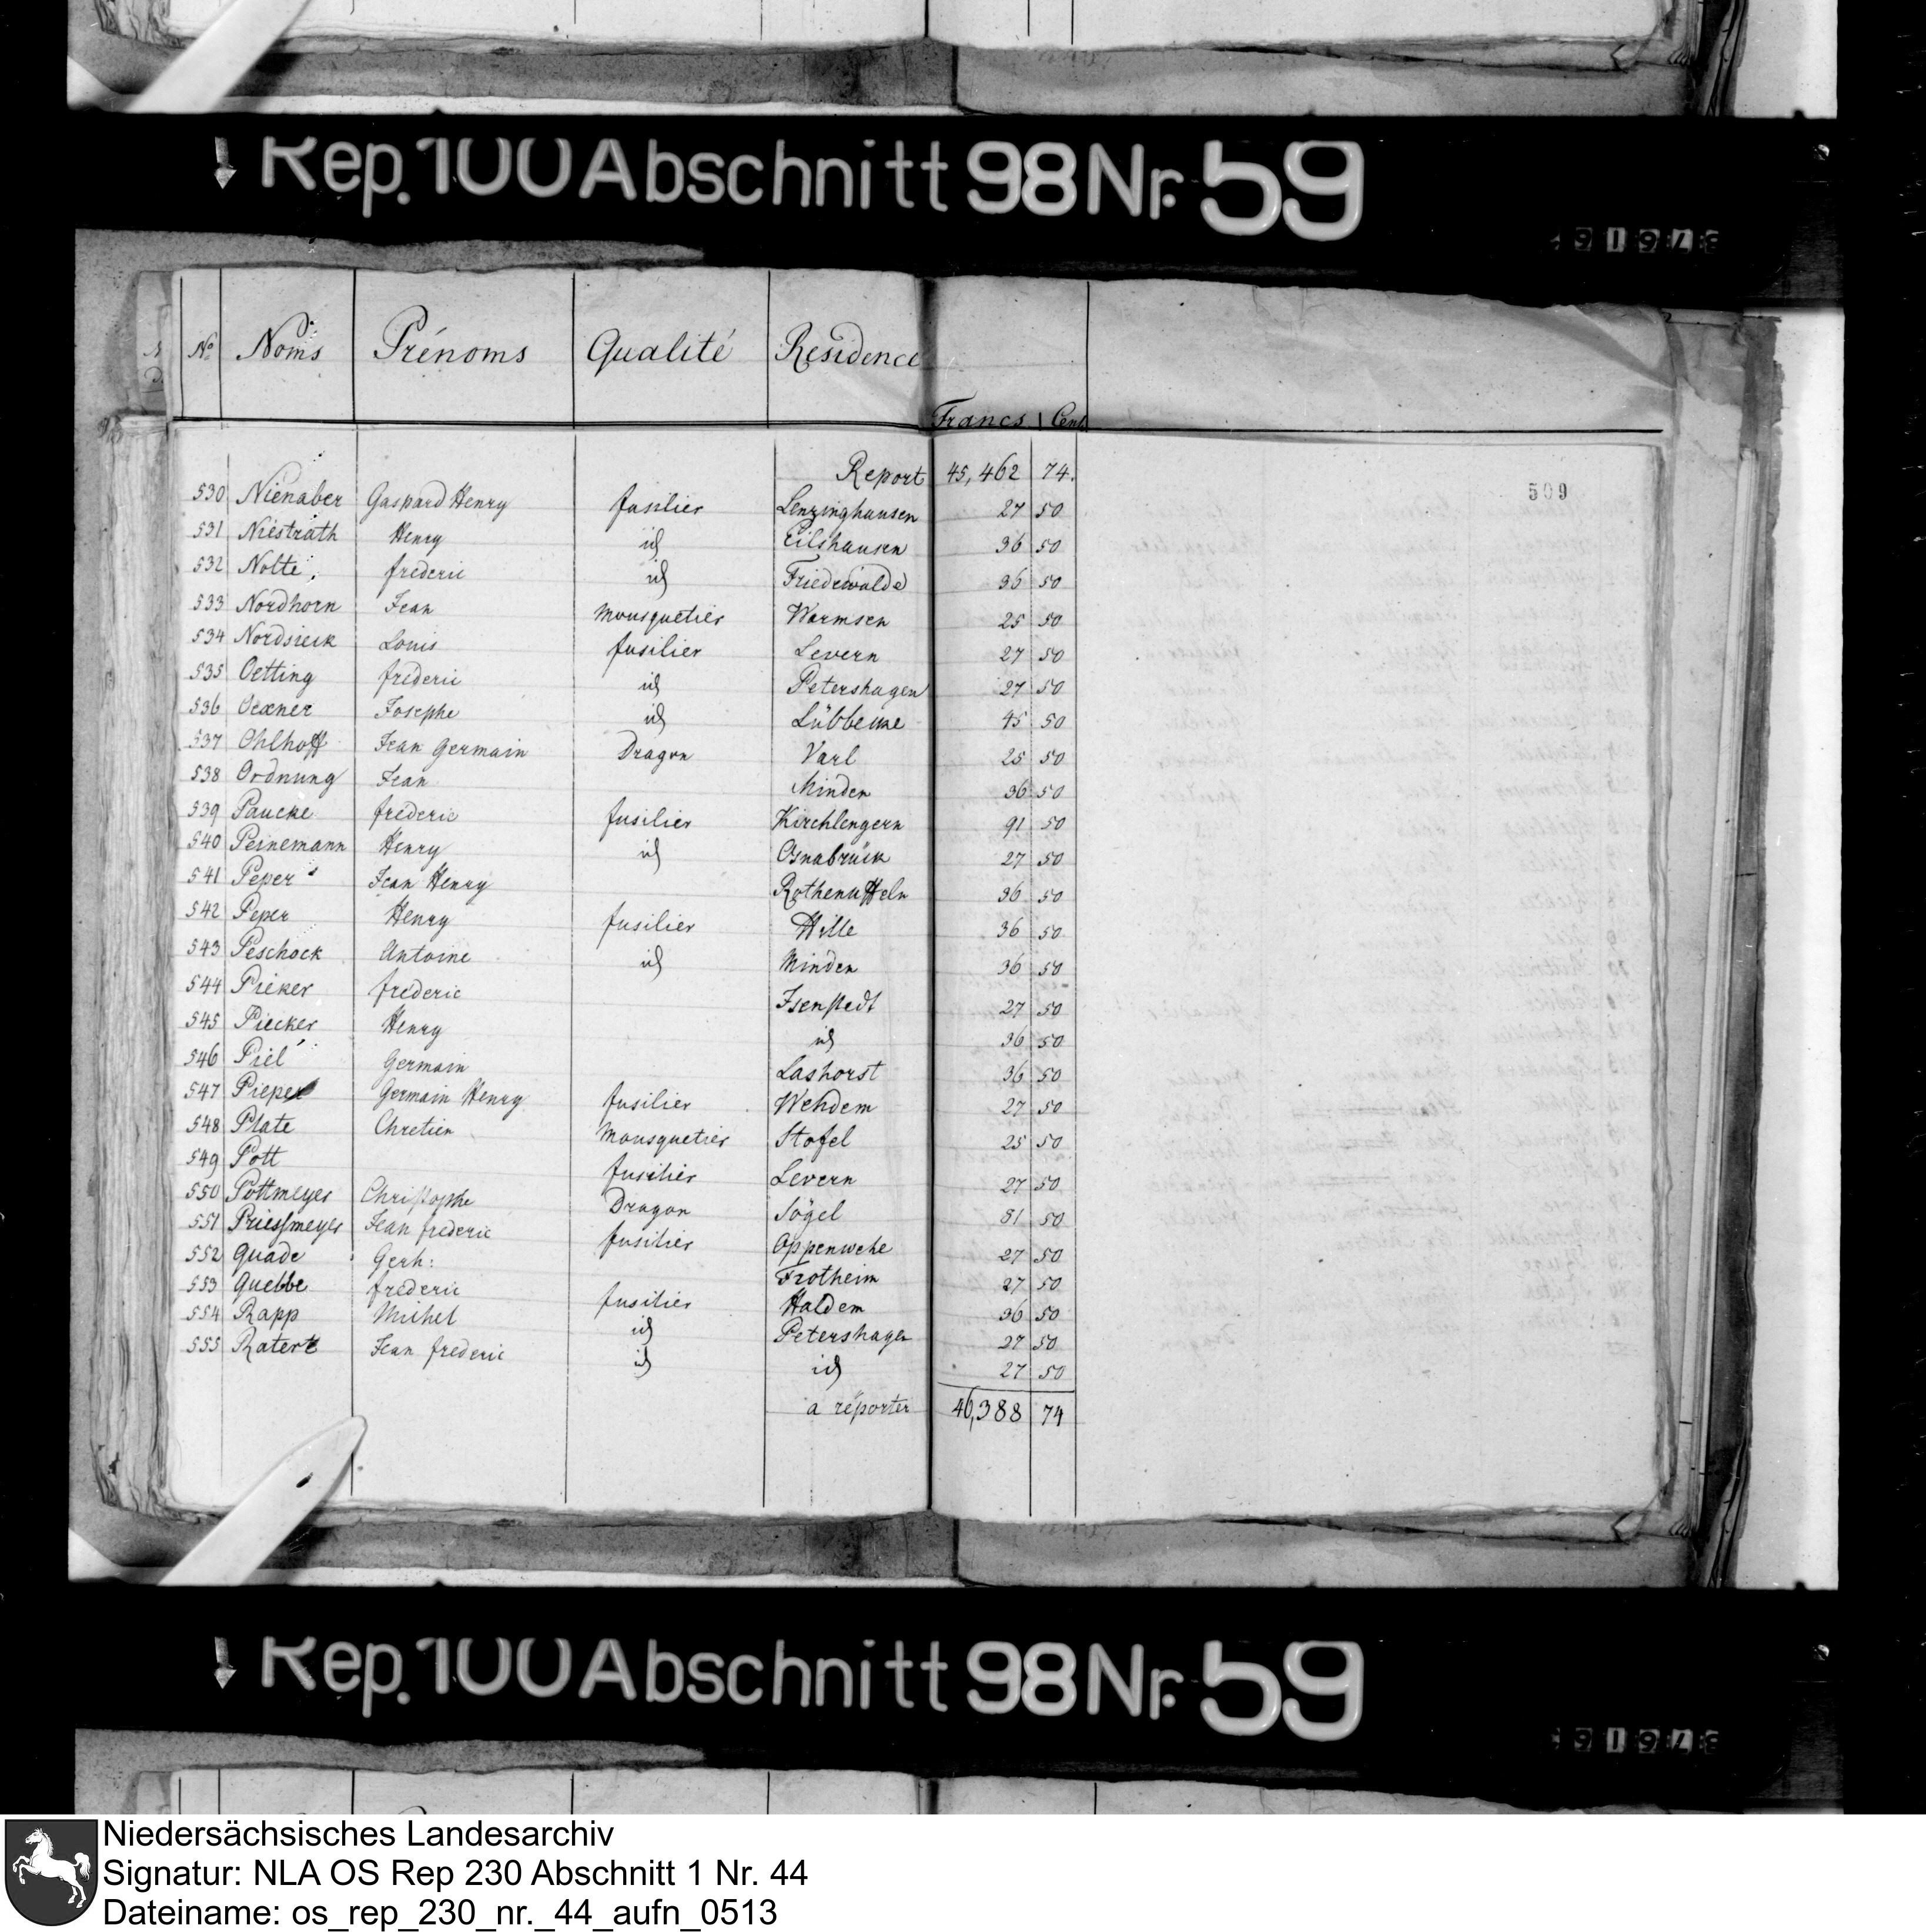 Rep. 100 Abschnitt 98 Nr. 59
No Noms Prénoms Qualité Residence
Francs Cent
Report 45,462 74.
509
530 Nienaber Gaspard Henry fusilier Lenzinghausen 27 50
531 Niestrath Henry id Eilshausen 36 50
532 Nolte frederic id Friedewalde 36 50
533 Nordhorn Jean Mousquetier Warmsen 25 50
534 Nordsieck Louis fusilier Levern 27 50
535 Oetting frederic id Petershagen 27 50
536 Oexner Josephe id Lübbecke 45 50
537 Ohlhoff Jean Germain Dragon Varl 25 50
538 Ordnung Jean Minden 36 50
539 Paucke frederic fusilier Kirchlengern 91 50
540 Peinemann Henry id Osnabrück 27 50
541 Peper Jean Henry Rothenuffeln 36 50
542 Peper Henry fusilier Hille 36 50
543 Peschock Antoine id Minden 36 50
544 Pieker frederic Isenstedt 27 50
545 Piecker Henry id 36 50
546 Piel Germain Lashorst 36 50
547 Pieper Germain Henry fusilier Wehdem 27 50
548 Plate Chretien Mousquetier Stofel 25 50
549 Pott fusilier Levern 27 50
550 Pottmeyer Christophe Dragon Sögel 51 50
551 Priessmeyer Jean frederic fusilier Oppenwehe 27 50
552 Quade Gerh: Frotheim 27 50
553 Quebbe frederic fusilier Haldem 36 50
554 Rapp Michel id Petershagen 27 50
555 Ratert Jean frederic id id 27 50
a réporter 46,388 74
Rep. 100 Abschnitt 98 Nr. 59
Niedersächsisches Landesarchiv
Signatur: NLA OS Rep 230 Abschnitt 1 Nr. 44
Dateiname: os_rep_230_nr._44_aufn_0513